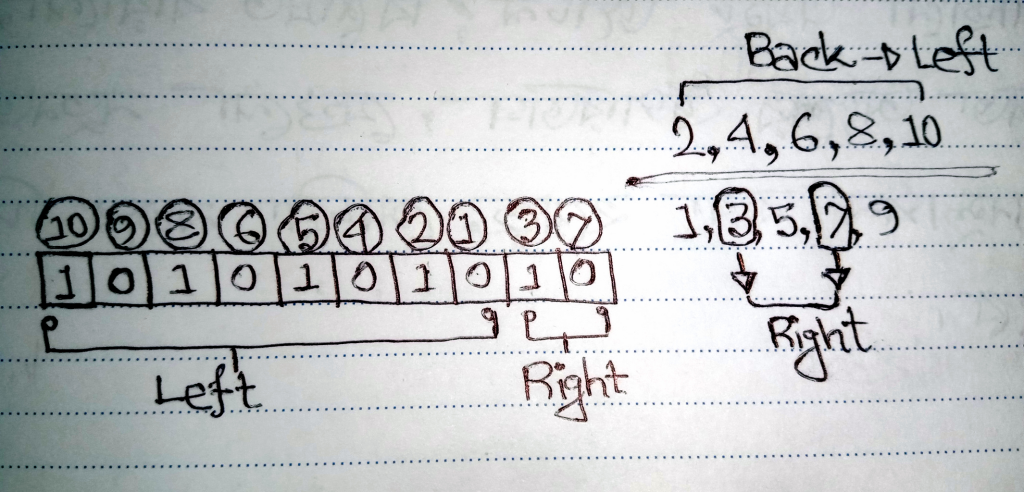 Back → Left
2, 4, 6, 8, 10
10 9 8 6 5 4 2 1 3 7
1, 3, 5, 7, 9
1 0 1 0 1 0 1 0 1 0
Left
Right
Right